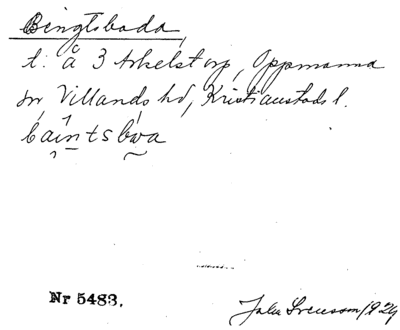 Bengtsboda,
t. å 3 Arkelstorp, Oppmanna
sn, Villands hd, Kristianstads l.
baintsbwa
Nr 5483.
John Svensson 1929